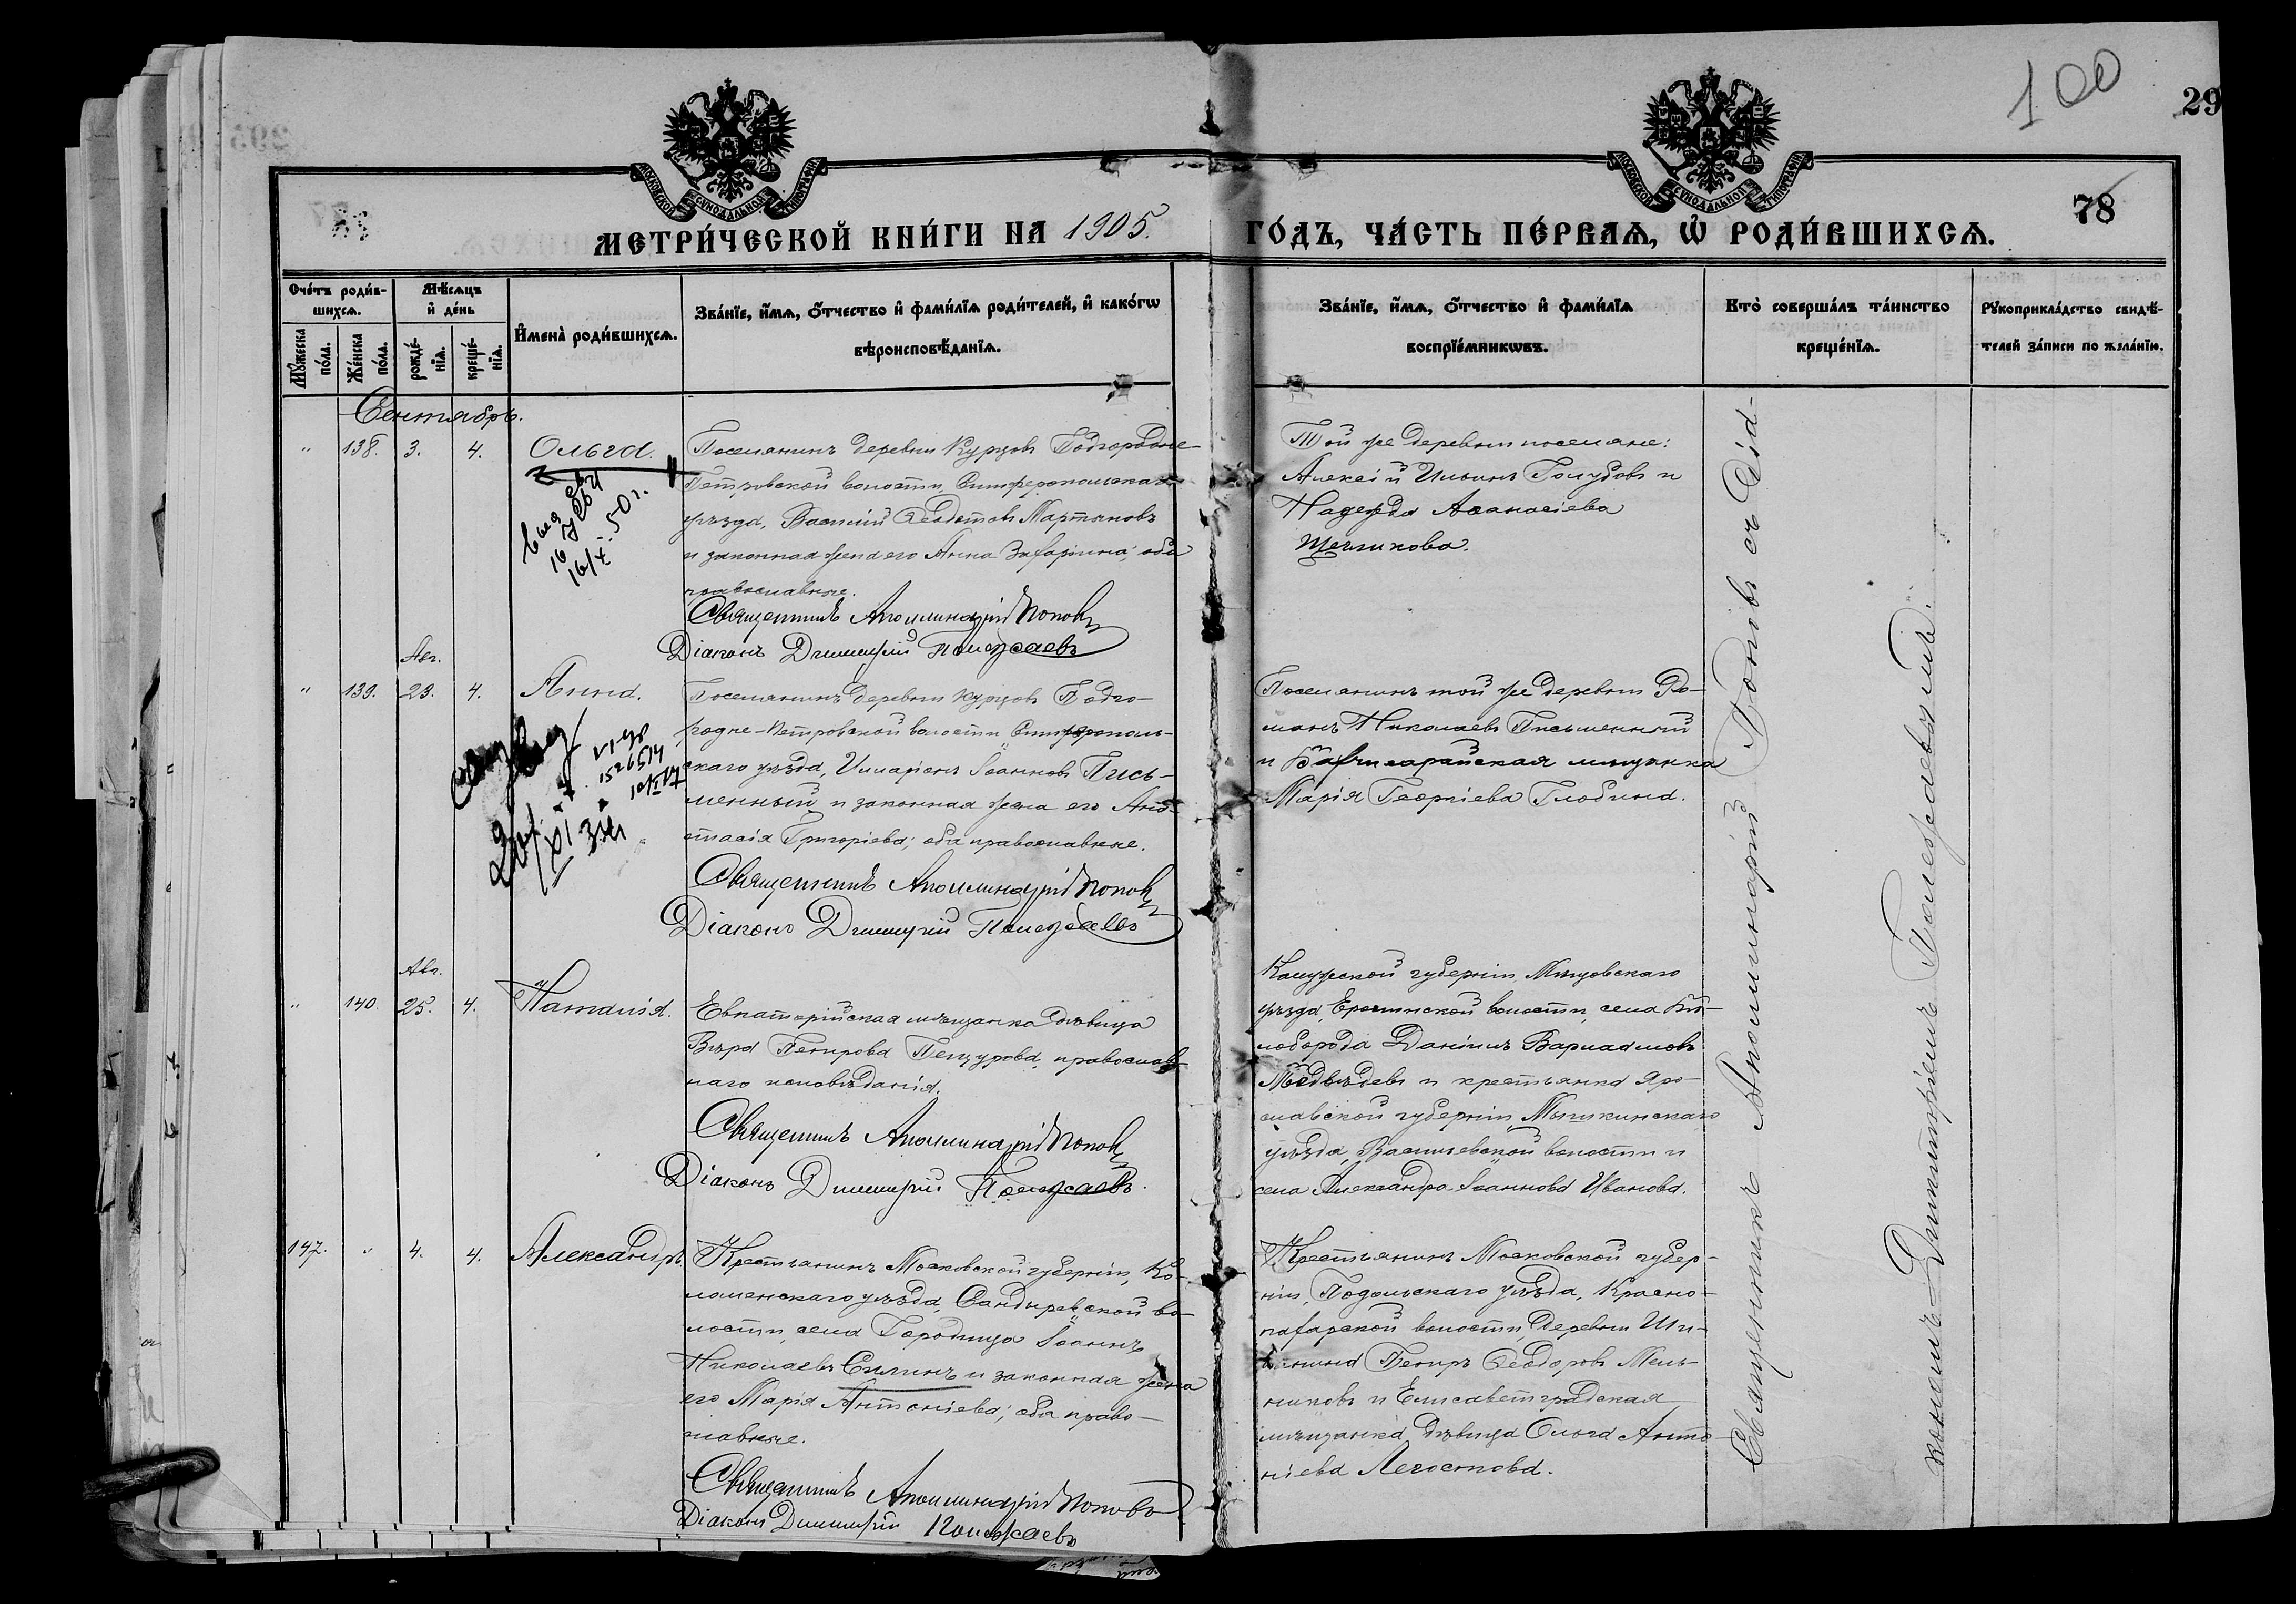 100
29
78
МОСКОВСКОЙ СѴНОДАЛЬНОЙ ТИПОГРАФІИ
МОСКОВСКОЙ СѴНОДАЛЬНОЙ ТИПОГРАФІИ
МЕТРИ́ЧЕСКОЙ КНИ́ГИ НА 1905.
ГО́ДЪ, ЧА́СТЬ ПЕ́РВАѦ, Ѡ҆ РОДИ́ВШИХСѦ.
Сче́тъ роди́в-
шихсѧ.
Мꙋ́жеска по́ла.
Же́нска по́ла.
Мѣ́сѧцъ
и҆ де́нь
рожде́-
нїѧ.
креще́-
нїѧ.
И҆мена̀ роди́вшихсѧ.
Зва́нїе, и҆́мѧ, ѻ҆́тчество и҆ фами́лїѧ роди́телей, и҆ како́гѡ
вѣроисповѣ́данїѧ.
Зва́нїе, и҆́мѧ, ѻ҆́тчество и҆ фами́лїѧ
воспрїе́мникѡвъ.
Кто̀ соверша́лъ та́инство
креще́нїѧ.
Рꙋкоприкла́дство свидѣ́-
телей за́писи по жела́нїю.
Сентябрь.
" 138. 3. 4. Ольга.
Поселянинъ деревни Курцовъ Подгородне-
Петровской волости Симферопольскаго
уѣзда, Василій Ѳеодотовъ Мартыновъ
и законная жена его Анна Захаріина; оба
православные.
Священникъ Аполлинарій Поповъ
Діаконъ Димитрій Полежаевъ
Той же деревни поселяне:
Алексій Ильинъ Голубовъ и
Надежда Аѳанасіева
Щегликова.
50 г.
Авг.
" 139. 23. 4. Анна.
Поселянинъ деревни Курцовъ Подго-
родне-Петровской волости Симферополь-
скаго уѣзда, Иларіонъ Іоанновъ Пись-
менный и законная жена его Ана-
стасія Григоріева; оба православные.
Священникъ Аполлинарій Поповъ
Діаконъ Димитрій Полежаевъ
Поселянинъ той же деревни Ро-
манъ Николаевъ Письменный
и Бахчисарайская мѣщанка
Марія Георгіева Глобина.
Авг.
" 140. 25. 4. Наталія.
Евпаторійская мѣщанка дѣвица
Вѣра Петрова Пецурова, православ-
наго исповѣданія.
Священникъ Аполлинарій Поповъ
Діаконъ Димитрій Полежаевъ.
Калужской губерніи, Мещовскаго
уѣзда, Ерлинской волости, села Бѣ-
лоборода Даніилъ Варлаамовъ
Медвѣдевъ и крестьянка Яро-
славской губерніи, Мышкинскаго
уѣзда, Васильевской волости и
села Александра Іоаннова Иванова.
147. " 4. 4. Александръ.
Крестьянинъ Московской губерніи, Ко-
ломенскаго уѣзда, Сандыревской во-
лости, села Городища Іоаннъ
Николаевъ Еминъ и законная жена
его Марія Антоніева; оба право-
славные.
Священникъ Аполлинарій Поповъ
Діаконъ Димитрій Полежаевъ
Крестьянинъ Московской губер-
ніи, Подольскаго уѣзда, Красно-
пахарской волости, деревни Ши-
Петръ Ѳеодоровъ Мель-
никовъ и Елисаветградская
мѣщанка дѣвица Ольга Анто-
ніева Легостова.
Священникъ Аполлинарій Поповъ съ діа-
кономъ Димитріемъ Полежаевымъ.